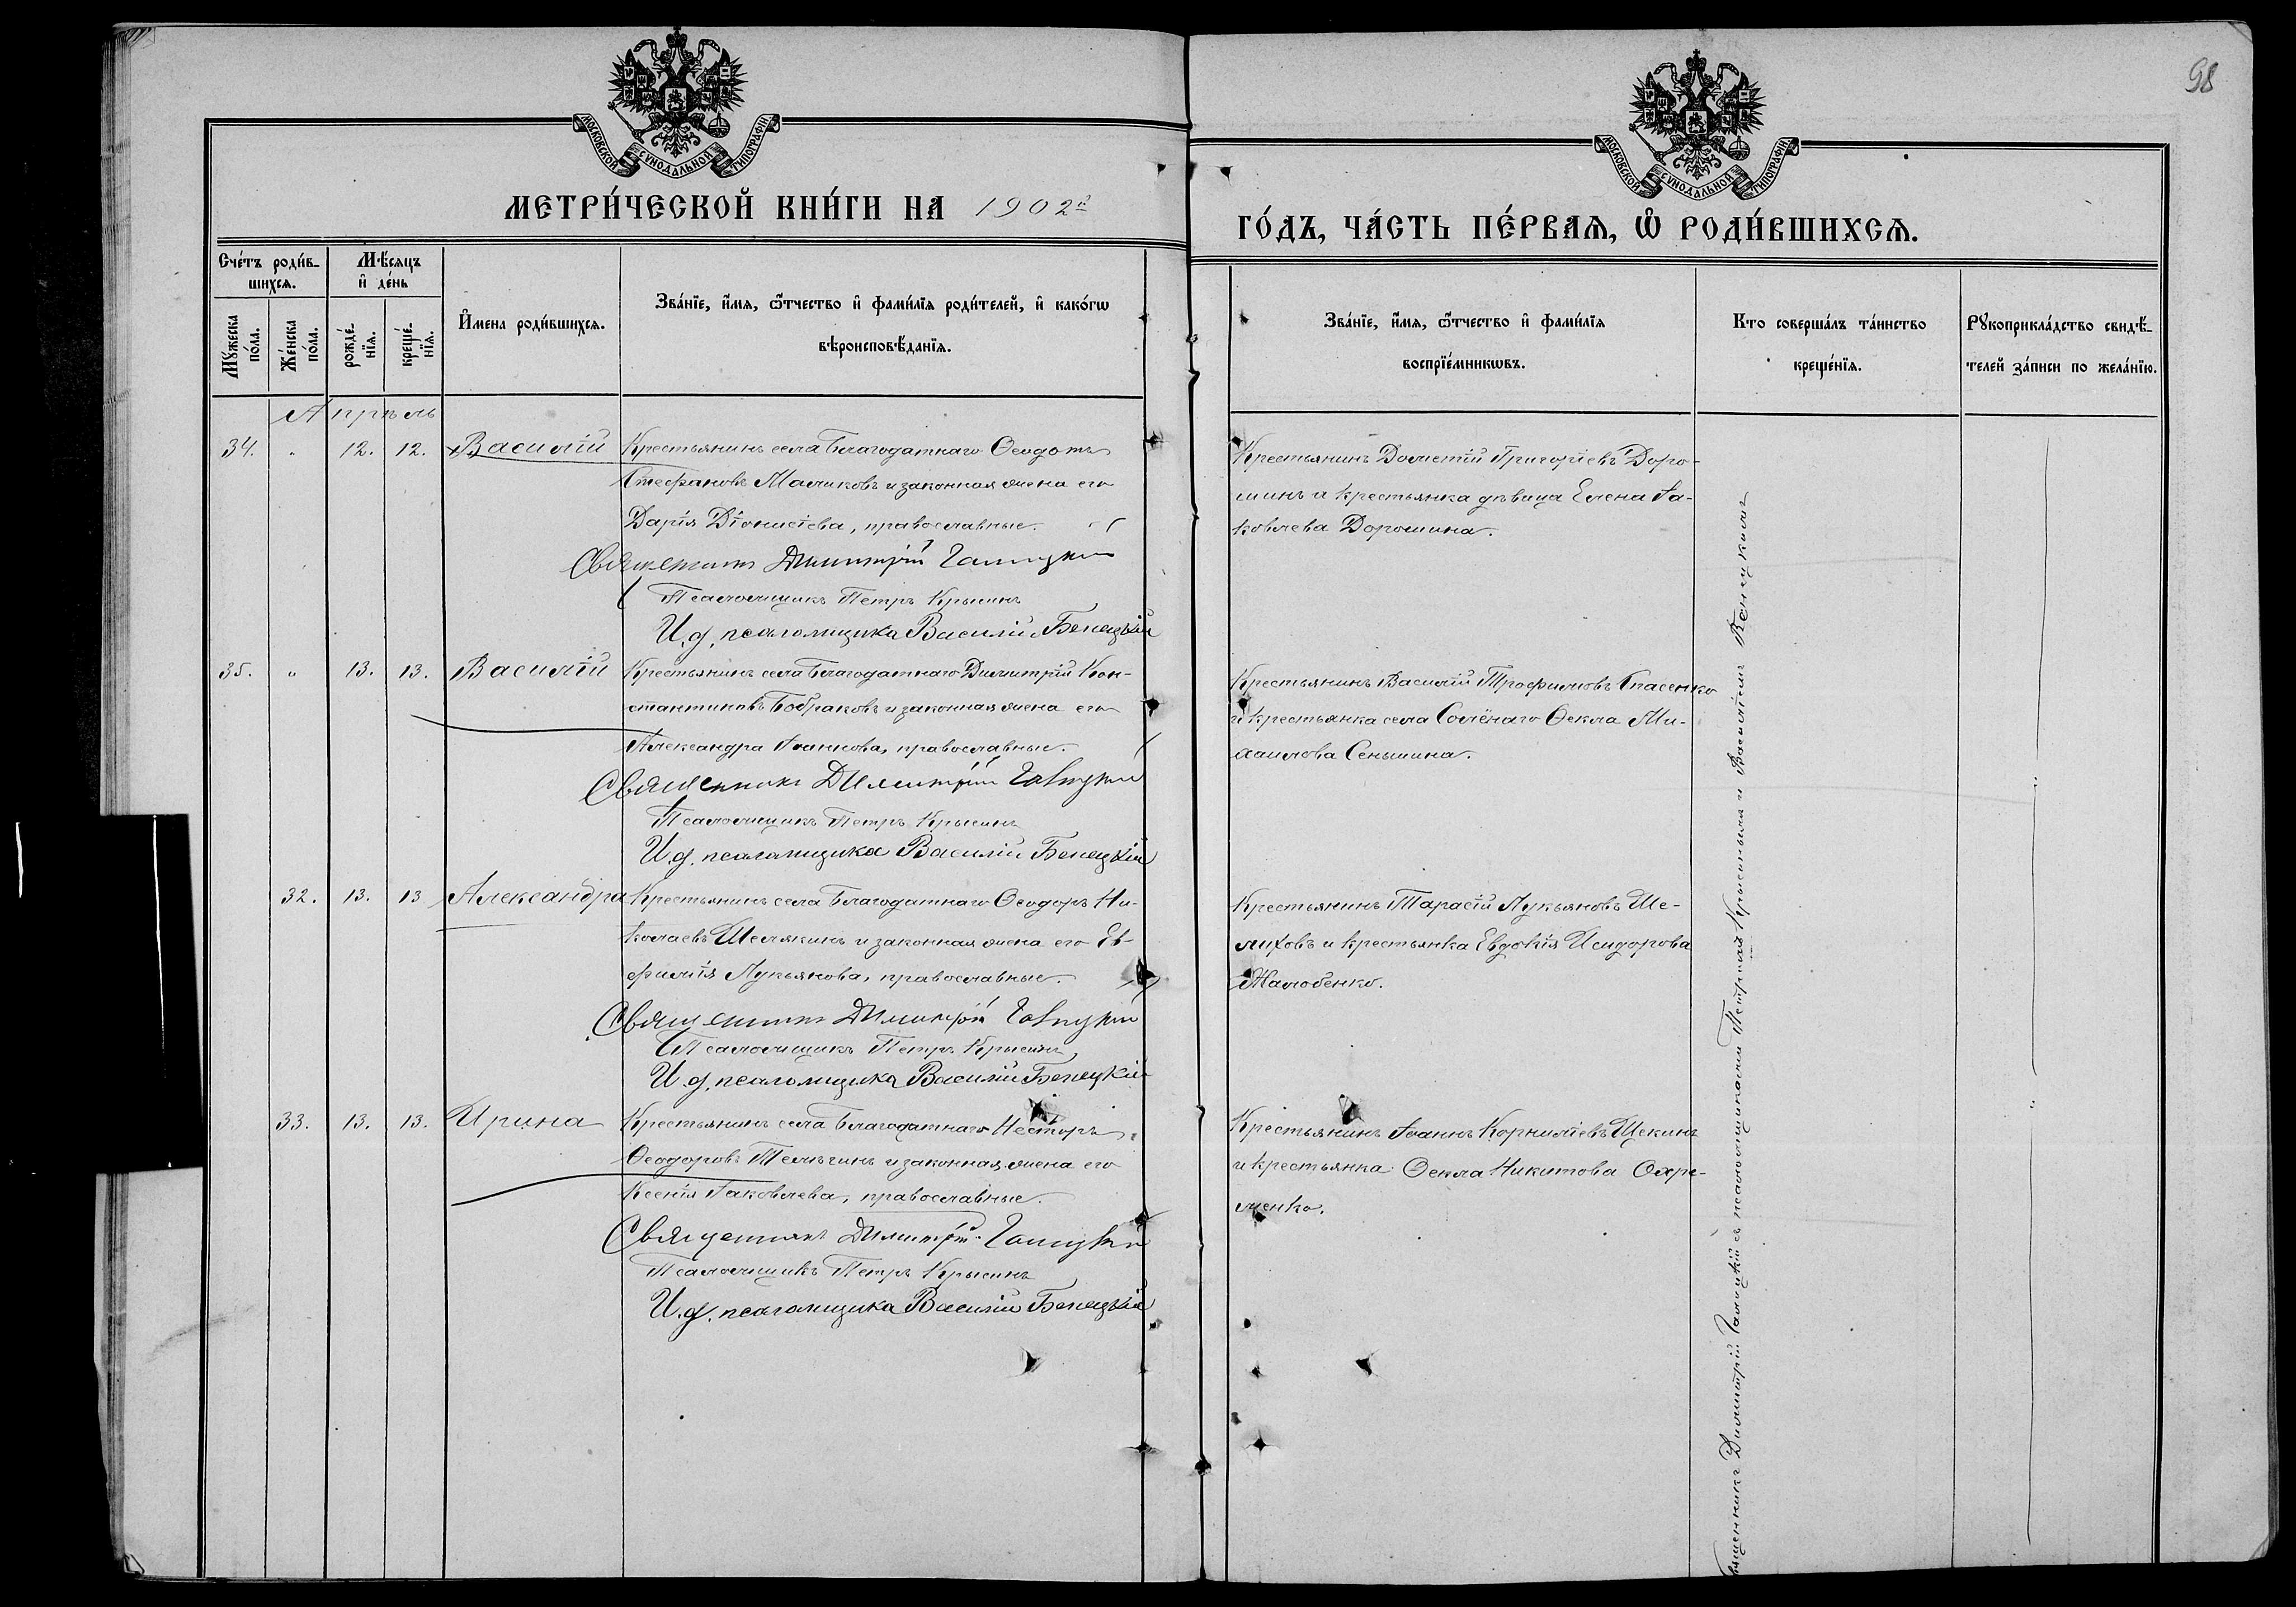 98
МОСКОВСКОЙ СУНОДАЛЬНОЙ ТИПОГРАФІИ
МОСКОВСКОЙ СУНОДАЛЬНОЙ ТИПОГРАФІИ
МЕТРИ́ЧЕСКОЙ КНИ́ГИ НА 1902й
ГО́ДЪ, ЧА́СТЬ ПЕ́РВАѦ, Ѡ РОДИ́ВШИХСѦ.
Сче́тъ роди́в-
шихсѧ.
Мѣ́сѧцъ
и де́нь
Мꙋ́жеска
по́ла.
Же́нска
по́ла.
рожде́-
нїѧ.
креще́-
нїѧ.
И́мена роди́вшихсѧ.
Зва́нїе, и́мѧ, ѻ́тчество и фами́лїѧ роди́телей, и како́гѡ
вѣроисповѣ́данїѧ.
Зва́нїе, и́мѧ, ѻ́тчество и фами́лїѧ
воспрїе́мникѡвъ.
Кто соверша́лъ та́инство
креще́нїѧ.
Рꙋкоприкла́дство свидѣ́-
телей за́писи по жела́нїю.
Апрѣль
34. " 12. 12. Василій Крестьянинъ села Благодатнаго Ѳеодотъ
Стефановъ Маликовъ и законная жена его
Дарія Діонисіева, православные.
Священникъ Димитрій Галицкій
Псаломщикъ Петръ Крысинъ
И. д. псаломщика Василій Бенецкій
Крестьянинъ Дометій Григоріевъ Доро-
шинъ и крестьянка дѣвица Елена Іа-
ковлева Дорошина.
35. " 13. 13. Василій Крестьянинъ села Благодатнаго Димитрій Кон-
стантиновъ Бобраковъ и законная жена его
Александра Іоаннова, православные.
Священникъ Димитрій Галицкій
Псаломщикъ Петръ Крысинъ
И. д. псаломщика Василій Бенецкій
Крестьянинъ Василій Трофимовъ Спасенко
и крестьянка села Солёнаго Ѳекла Ми-
хаилова Сеньшина.
32. 13. 13 Александра Крестьянинъ села Благодатнаго Ѳеодоръ Ни-
колаевъ Шелякинъ и законная жена его Ев-
фимія Лукьянова, православные.
Священникъ Димитрій Галицкій
Псаломщикъ Петръ Крысинъ
И. д. псаломщика Василій Бенецкій
Крестьянинъ Тарасій Лукьяновъ Ше-
лиховъ и крестьянка Евдокія Исидорова
Жалобенко.
33. 13. 13. Ирина Крестьянинъ села Благодатнаго Несторъ
Ѳеодоровъ Телегинъ и законная жена его
Ксенія Іаковлева, православные.
Священникъ Димитрій Галицкій
Псаломщикъ Петръ Крысинъ
И. д. псаломщика Василій Бенецкій
Крестьянинъ Іоаннъ Корниліевъ Щекинъ
и крестьянка Ѳекла Никитова Охри-
менко.
Священникъ Димитрій Галицкій съ псаломщиками Петромъ Крысинымъ и Василіемъ Бенецкимъ